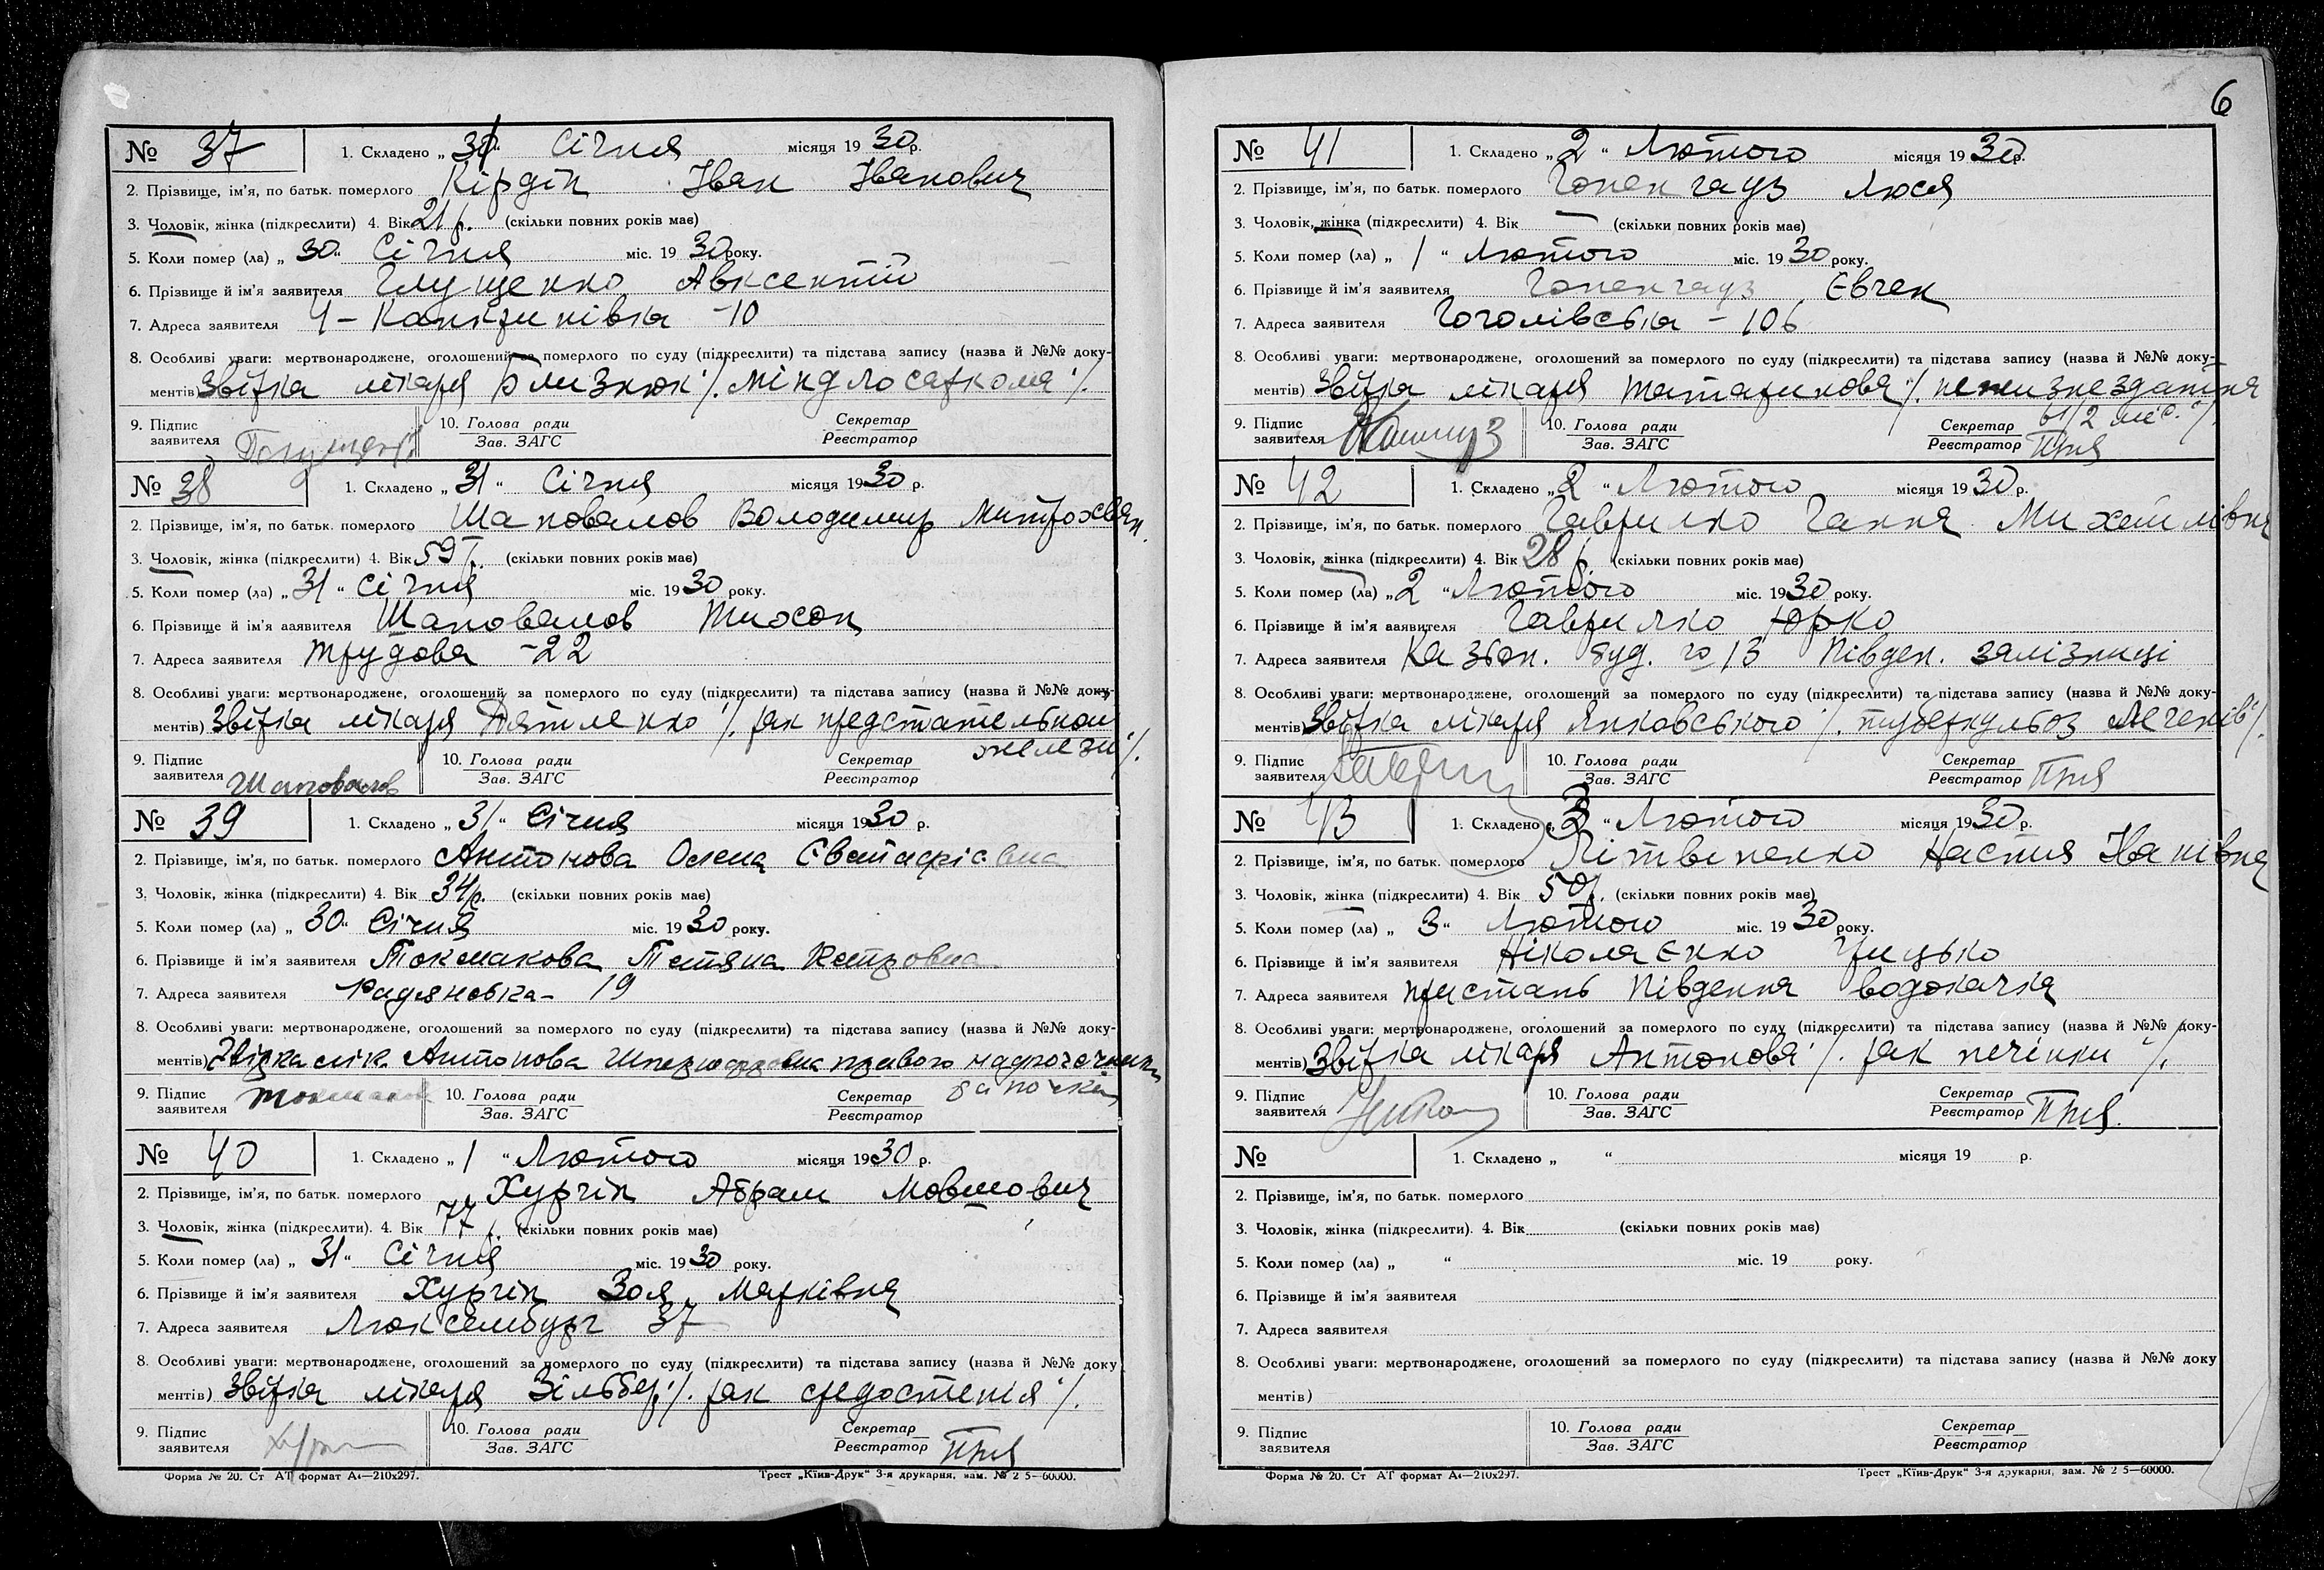 6
№ 37 1. Складено „ 31 “ Січня місяця 19 30 р.
2. Прізвище, ім'я, по батьк. померлого Кірдін Іван Іванович
3. Чоловік, жінка (підкреслити) 4. Вік 21 р. (скільки повних років має)
5. Коли помер (ла) „ 30 “ Січня міс. 19 30 року.
6. Прізвище й ім'я заявителя Глущенко Авксентій
7. Адреса заявителя 4 – Канкринівка – 10
8. Особливі уваги: мертвонароджене, оголошений за померлого по суду (підкреслити) та підстава запису (назва й №№ доку-
ментів) Звідка лікаря Близнюк
9. Підпис заявителя 10. Голова ради Зав. ЗАГС Секретар Реєстратор
№ 38 1. Складено „ 31 “ Січня місяця 19 30 р.
2. Прізвище, ім'я, по батьк. померлого Шаповалов Володимир Митрохван.
3. Чоловік, жінка (підкреслити) 4. Вік 59 р. (скільки повних років має)
5. Коли помер (ла) „ 31 “ Січня міс. 19 30 року.
6. Прізвище й ім'я заявителя Шаповалов
7. Адреса заявителя Трудова – 22
8. Особливі уваги: мертвонароджене, оголошений за померлого по суду (підкреслити) та підстава запису (назва й №№ доку-
ментів) Звідка лікаря Дятленко ∕. рак предстательной
железы ∕.
9. Підпис заявителя Шаповалов 10. Голова ради Зав. ЗАГС Секретар Реєстратор
№ 39 1. Складено „ 31 “ Січня місяця 19 30 р.
2. Прізвище, ім'я, по батьк. померлого Антонова Олена
3. Чоловік, жінка (підкреслити) 4. Вік 34 р. (скільки повних років має)
5. Коли помер (ла) „ 30 “ Січня міс. 19 30 року.
6. Прізвище й ім'я заявителя Токмакова Тетяна Петровна
7. Адреса заявителя Радянська – 19
8. Особливі уваги: мертвонароджене, оголошений за померлого по суду (підкреслити) та підстава запису (назва й №№ доку-
ментів) Звідка лік. Антонова правого
9. Підпис заявителя 10. Голова ради Зав. ЗАГС Секретар Реєстратор
№ 40 1. Складено „ 1 “ Лютого місяця 19 30 р.
2. Прізвище, ім'я, по батьк. померлого Хургін Абрам Мовшович
3. Чоловік, жінка (підкреслити). 4. Вік 77 р. (скільки повних років має)
5. Коли помер (ла) „ 31 “ Січня міс. 19 30 року.
6. Прізвище й ім'я заявителя Хургін Зоя Марківна
7. Адреса заявителя Люксембург 37
8. Особливі уваги: мертвонароджене, оголошений за померлого по суду (підкреслити) та підстава запису (назва й №№ доку
ментів) Звідка лікаря Зільбер ∕. рак средостенія ∕.
9. Підпис заявителя 10. Голова ради Зав. ЗАГС Секретар Реєстратор
Форма № 20. Ст АТ формат А4—210х297. Трест „Київ-Друк“ 3-я друкарня, зам. № 2 5—60000.
№ 41 1. Складено „ 2 “ Лютого місяця 19 30 р.
2. Прізвище, ім'я, по батьк. померлого Гопенгауз Люся
3. Чоловік, жінка (підкреслити) 4. Вік — (скільки повних років має)
5. Коли помер (ла) „ 1 “ Лютого міс. 19 30 року.
6. Прізвище й ім'я заявителя Гопенгауз Євген
7. Адреса заявителя Гоголівська – 106
8. Особливі уваги: мертвонароджене, оголошений за померлого по суду (підкреслити) та підстава запису (назва й №№ доку-
ментів) Звідка лікаря Татаринова ∕.
1/2 міс. ∕.
9. Підпис заявителя 10. Голова ради Зав. ЗАГС Секретар Реєстратор
№ 42 1. Складено „ 2 “ Лютого місяця 19 30 р.
2. Прізвище, ім'я, по батьк. померлого Гаврилко Ганна Михайлівна
3. Чоловік, жінка (підкреслити) 4. Вік 28 р. (скільки повних років має)
5. Коли помер (ла) „ 2 “ Лютого міс. 19 30 року.
6. Прізвище й ім'я заявителя Гаврилко Юрко
7. Адреса заявителя буд. № 13 Півден. залізниці
8. Особливі уваги: мертвонароджене, оголошений за померлого по суду (підкреслити) та підстава запису (назва й №№ доку-
ментів) Звідка лікаря Янковського ∕. туберкульоз легенів ∕.
9. Підпис заявителя 10. Голова ради Зав. ЗАГС Секретар Реєстратор
№ 43 1. Складено „ 3 “ Лютого місяця 19 30 р.
2. Прізвище, ім'я, по батьк. померлого Літвіненко Настя Іванівна
3. Чоловік, жінка (підкреслити) 4. Вік 50 р. (скільки повних років має)
5. Коли помер (ла) „ 3 “ Лютого міс. 19 30 року.
6. Прізвище й ім'я заявителя Ніколаєнко Грицько
7. Адреса заявителя пристань Південна водокачка
8. Особливі уваги: мертвонароджене, оголошений за померлого по суду (підкреслити) та підстава запису (назва й №№ доку-
ментів) Звідка лікаря Антонова ∕. рак печінки ∕.
9. Підпис заявителя 10. Голова ради Зав. ЗАГС Секретар Реєстратор
№ 1. Складено „ “ місяця 19 р.
2. Прізвище, ім'я, по батьк. померлого
3. Чоловік, жінка (підкреслити). 4. Вік (скільки повних років має)
5. Коли помер (ла) „ “ міс. 19 року.
6. Прізвище й ім'я заявителя
7. Адреса заявителя
8. Особливі уваги: мертвонароджене, оголошений за померлого по суду (підкреслити) та підстава запису (назва й №№ доку
ментів)
9. Підпис заявителя 10. Голова ради Зав. ЗАГС Секретар Реєстратор
Форма № 20. Ст АТ формат А4—210х297. Трест „Київ-Друк“ 3-я друкарня, зам. № 2 5—60000.